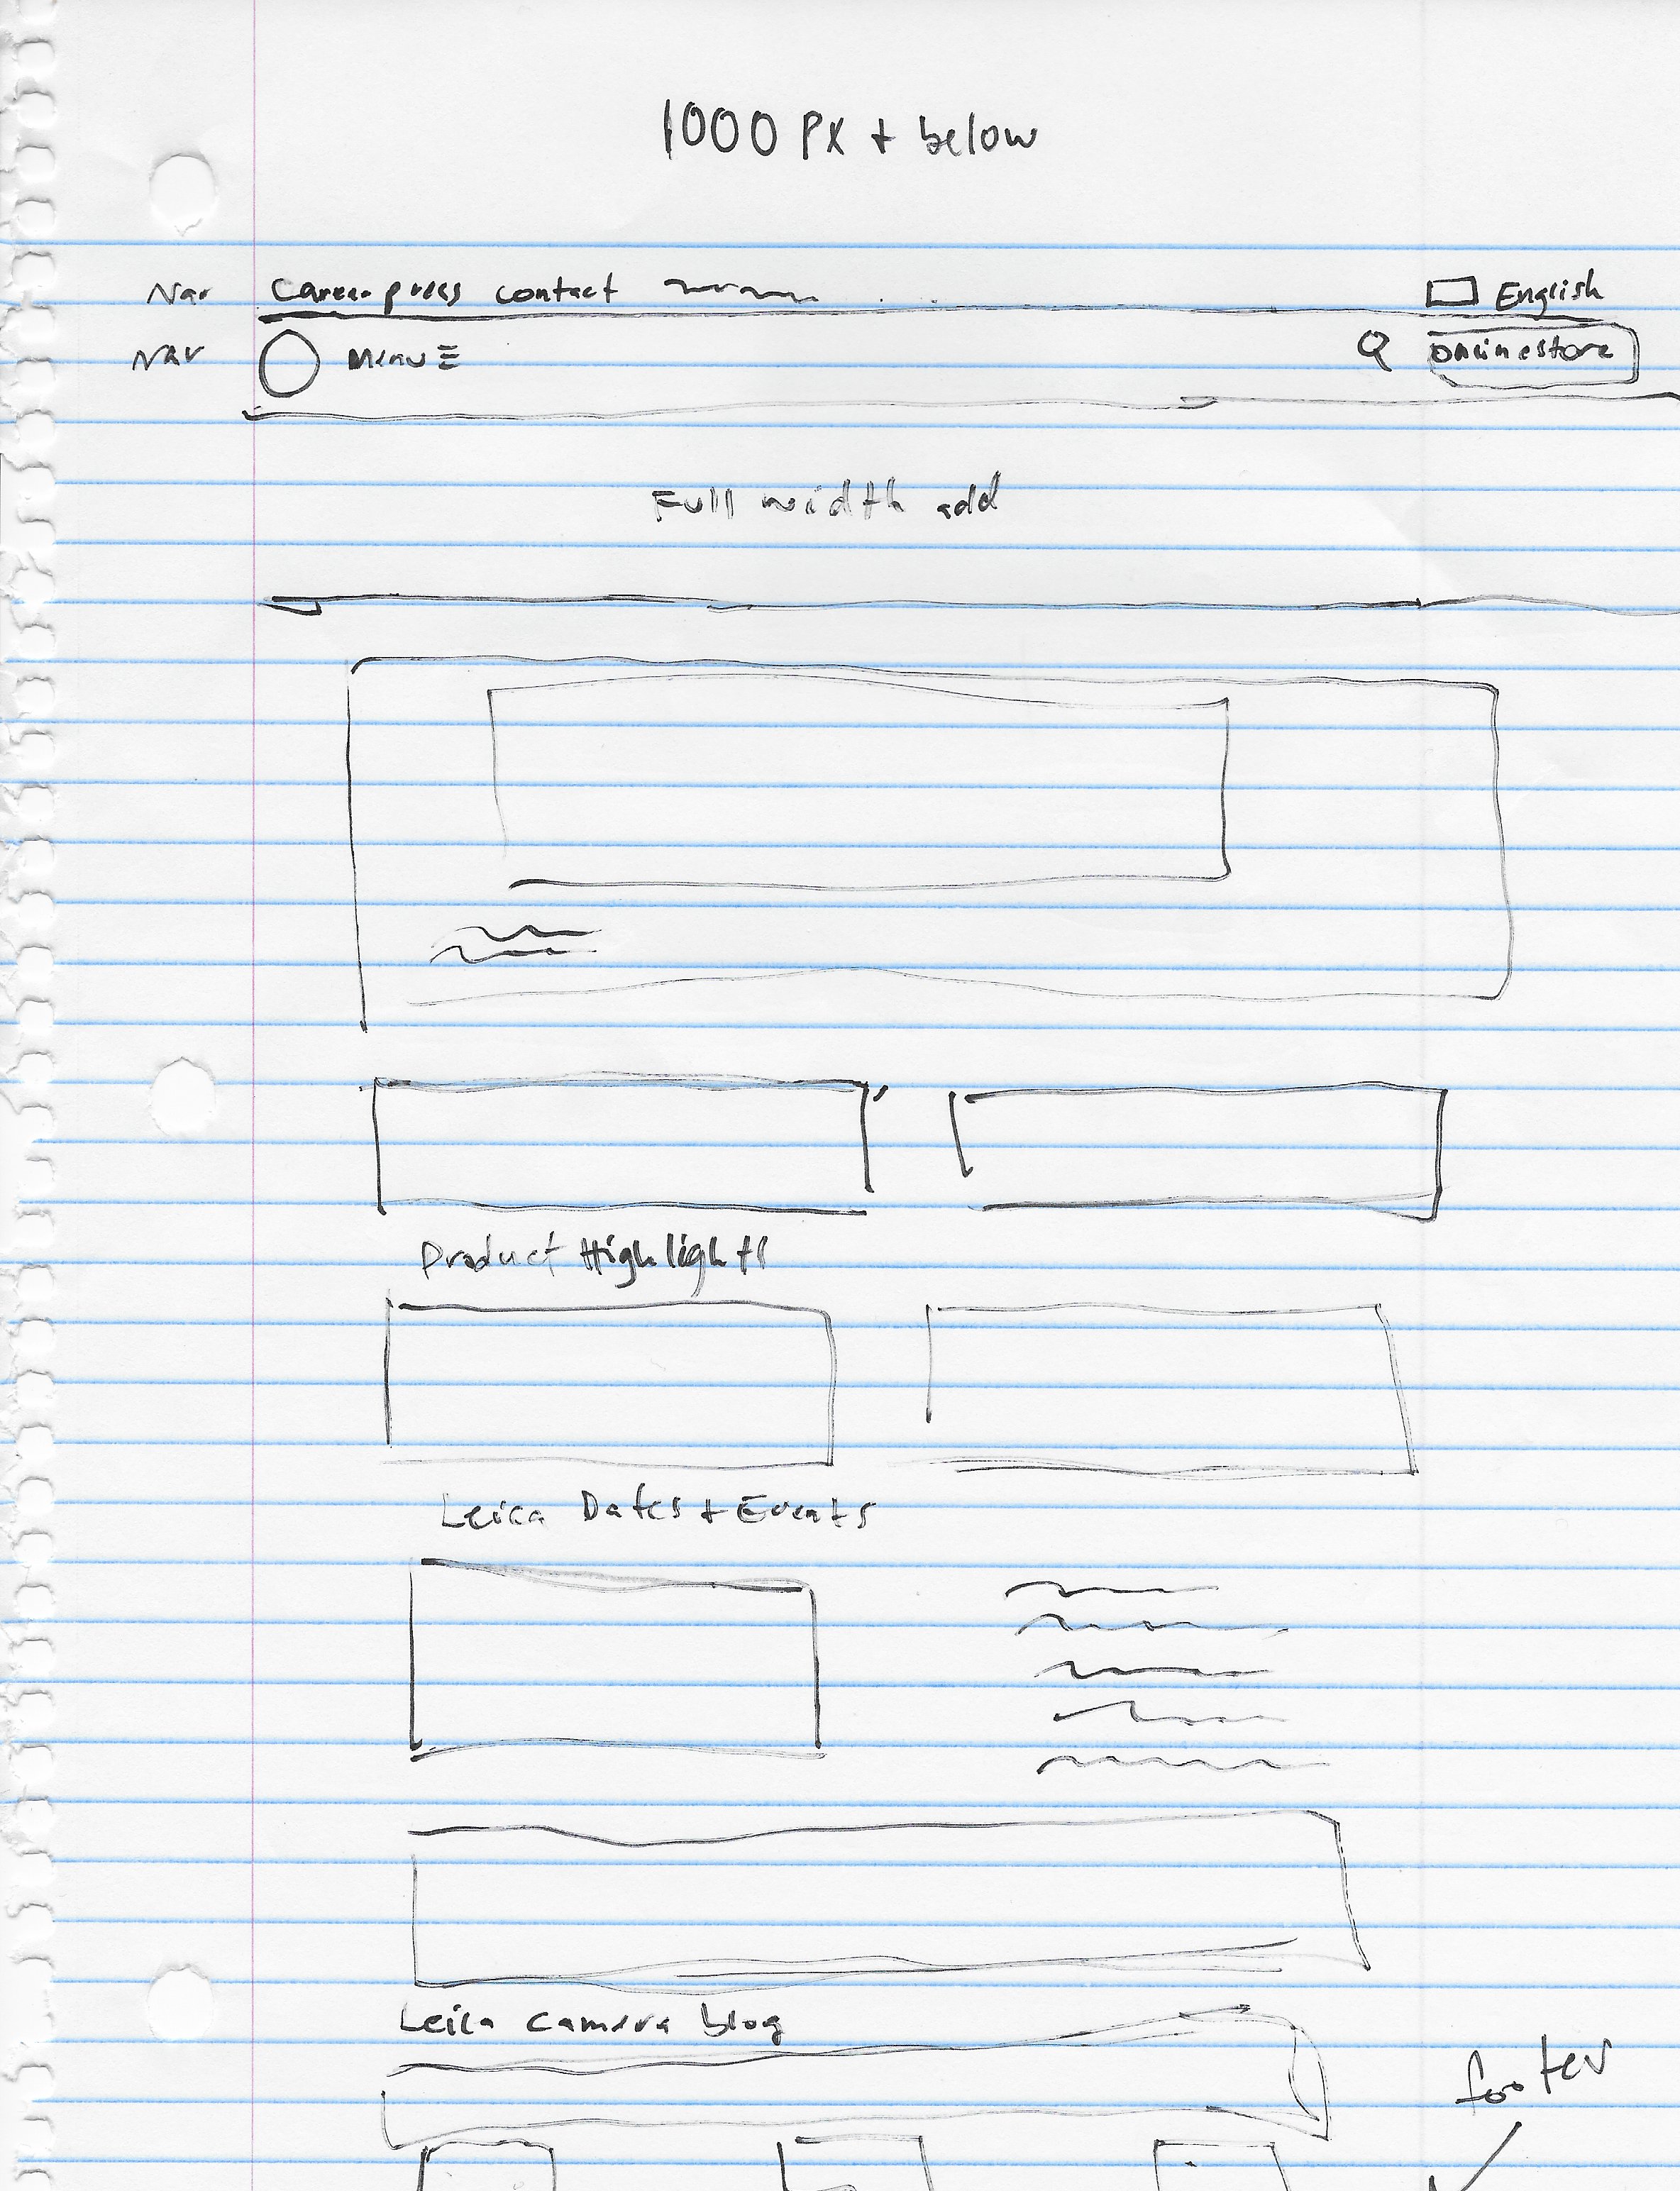 1000 PX + below
Nav Career press contact English
Nav Menu onlinestore
Full width add
Product Highlights
Leica Dates + Events
Leica Camera blog
footer